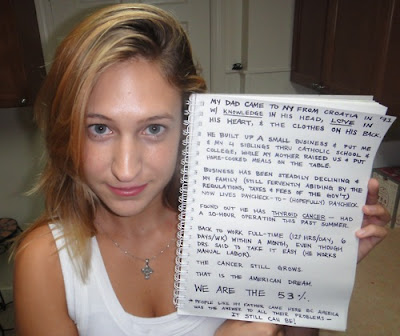 MY DAD CAME TO NY FROM CROATIA IN '82
W/ KNOWLEDGE IN HIS HEAD, LOVE IN
HIS HEART, & THE CLOTHES ON HIS BACK.
HE BUILT UP A SMALL BUSINESS & PUT ME
& MY 4 SIBLINGS THRU CATHOLIC SCHOOL &
COLLEGE, WHILE MY MOTHER RAISED US & PUT
HOME-COOKED MEALS ON THE TABLE.
BUSINESS HAS BEEN STEADILY DECLINING &
MY FAMILY (STILL FERVENTLY ABIDING BY THE
REGULATIONS, TAXES & FEES OF THE GOV'T)
NOW LIVES PAYCHECK-TO-(HOPEFULLY) PAYCHECK.
FOUND OUT HE HAS THYROID CANCER — HAD
A 20-HOUR OPERATION THIS PAST SUMMER.
BACK TO WORK FULL-TIME (12+ HRS/DAY, 6
DAYS/WK) WITHIN A MONTH, EVEN THOUGH
DRS SAID TO TAKE IT EASY (HE WORKS
MANUAL LABOR).
THE CANCER STILL GROWS.
THAT IS THE AMERICAN DREAM.
WE ARE THE 53%.
PEOPLE LIKE MY FATHER CAME HERE BC AMERICA
WAS THE ANSWER TO ALL THEIR PROBLEMS —
IT STILL CAN BE!